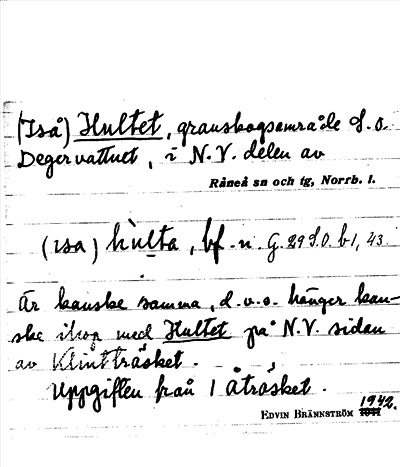 (Iså) Hultet, granskogsområde S.O.
Degervattnet, i N.V. delen av
Råneå sn och tg, Norrb. l.
(ısa) hùlta, bf. n. G. 29 S.O. b1, 43.
Är kanske samma, d.v.s. hänger kan-
ske ihop med Hultet på N.V. sidan
av Klintträsket.
Uppgiften från 1 Åträsket.
EDVIN BRÄNNSTRÖM 1942.